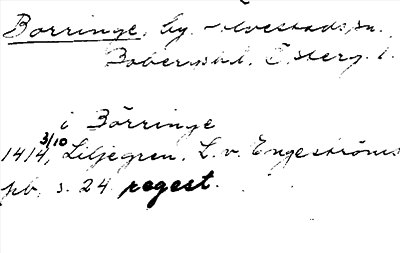 Börringe, by. Älvestads sn.
Bobergs hd. Österg. l.
i Börringe
1414 3/10, Liljegren. L. v. Engeströms
pb, s. 24 regest.